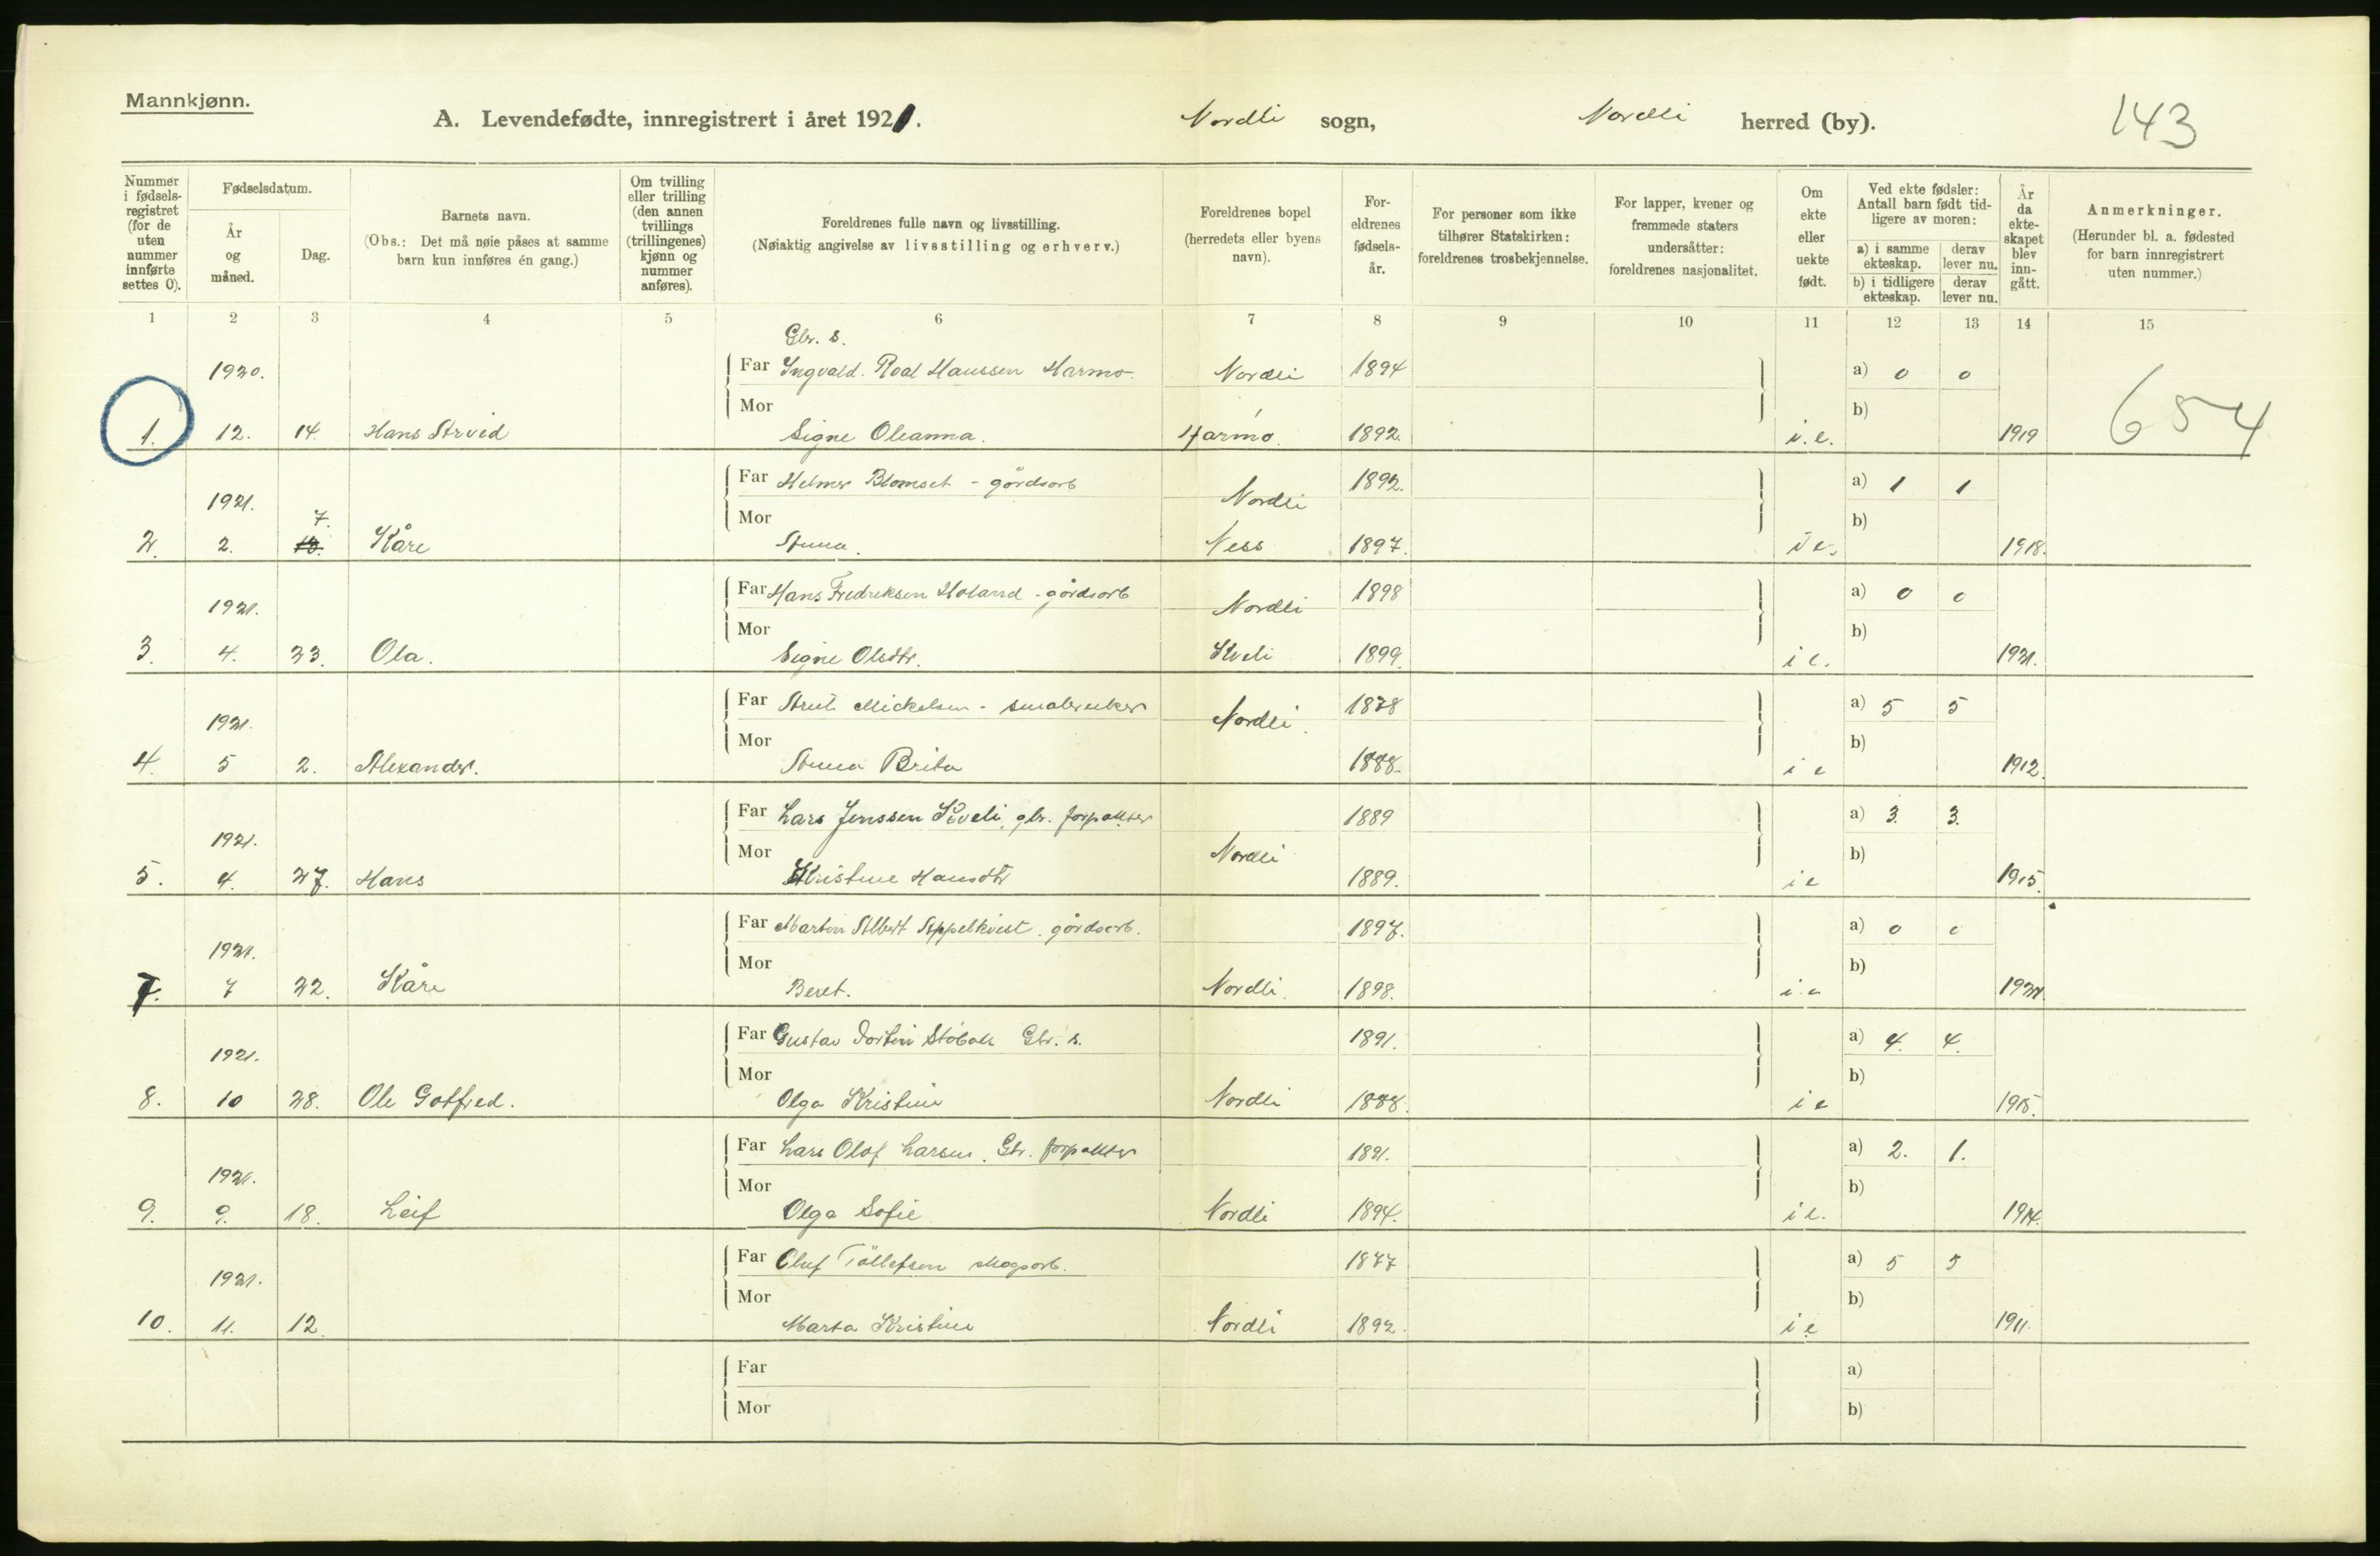 Mannkjønn.
A. Levendefødte, innregistrert i året 1921.
Nordli sogn,
Nordli herred (by).
143
Nummer i fødsels-registret (for de uten nummer innførte settes 0).
Fødselsdatum.
År og måned.
Dag.
Barnets navn.
(Obs.: Det må nøie påses at samme barn kun innføres én gang.)
Om tvilling eller trilling (den annen tvillings (trillingenes) kjønn og nummer anføres).
Foreldrenes fulle navn og livsstilling.
(Nøiaktig angivelse av livsstilling og erhverv.)
Foreldrenes bopel (herredets eller byens navn).
For-eldrenes fødsels-år.
For personer som ikke tilhører Statskirken: foreldrenes trosbekjennelse.
For lapper, kvener og fremmede staters undersåtter: foreldrenes nasjonalitet.
Om ekte eller uekte født.
Ved ekte fødsler: Antall barn født tid-ligere av moren:
a) i samme ekteskap. derav lever nu.
b) i tidligere ekteskap. derav lever nu.
År da ekte-skapet blev inn-gått.
Anmerkninger.
(Herunder bl. a. fødested for barn innregistrert uten nummer.)
1 2 3 4 5 6 7 8 9 10 11 12 13 14 15
Gbr. s.
1920. Far Ingvald. Roal Hanssen Harmo. Nordli 1894 a) 0 0
Mor b)
1. 12. 14. Hans Arvid Signe Oleanna. Harmo. 1892. i. e. 1919 654
Far Helmer Blomset - gårdsarb 1892. a) 1 1
1921. 7. Mor Nordli b)
2. 2. 13. Kåre Anna. Ness 1897. i e. 1918.
Far Hans Fredriksen Holand - gårdsarb 1898 a) 0 0
1921. Mor Nordli b)
3. 4. 23. Ola. Signe Olsdtr. Kveli 1899. i e. 1921.
Far Mickelsen - småbruker 1878 a) 5 5
1921. Mor Nordli. b)
4. 5 2. Alexander. Anna Brita 1888. i e 1912.
Far Lars Jenssen Kveli, gbr. forpakter 1889 a) 3. 3.
1921. Mor Nordli b)
5. 4. 27. Hans Kristine Hansdtr 1889. i e 1915.
Far Martin Albert Appelkvist. gårdsarb. 1897. a) 0 0
1921. Mor b)
7. 7 22. Kåre Beret. Nordli. 1898. i e 1921.
Far Gustav Torfin Støbak Gbr. s. 1891. a) 4. 4.
1921. Mor b)
8. 10 28. Ole Gotfred. Olga Kristine Nordli 1888. i e 1915.
Far Lars Olof Larsen. Gbr. forpakter 1891. a) 2. 1.
1921. Mor b)
9. 9. 18. Leif Olga Sofie Nordli 1894. i e. 1914.
Far Oluf Tållefsen skogsarb. 1877 a) 5 5
1921. Mor b)
10. 11. 12. Marta Kristine Nordli 1892. i e 1911.
Far a)
Mor b)